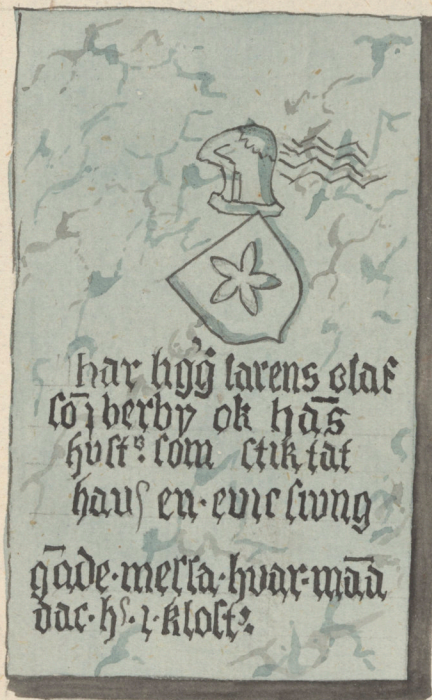 har ligg̃ larens olaf
sõ i berby ok hãs
hustꝰ som stiktat
haus en·euic siung
gãde·messa·huar·mãa
dac·hˢ·i·klostꝰ